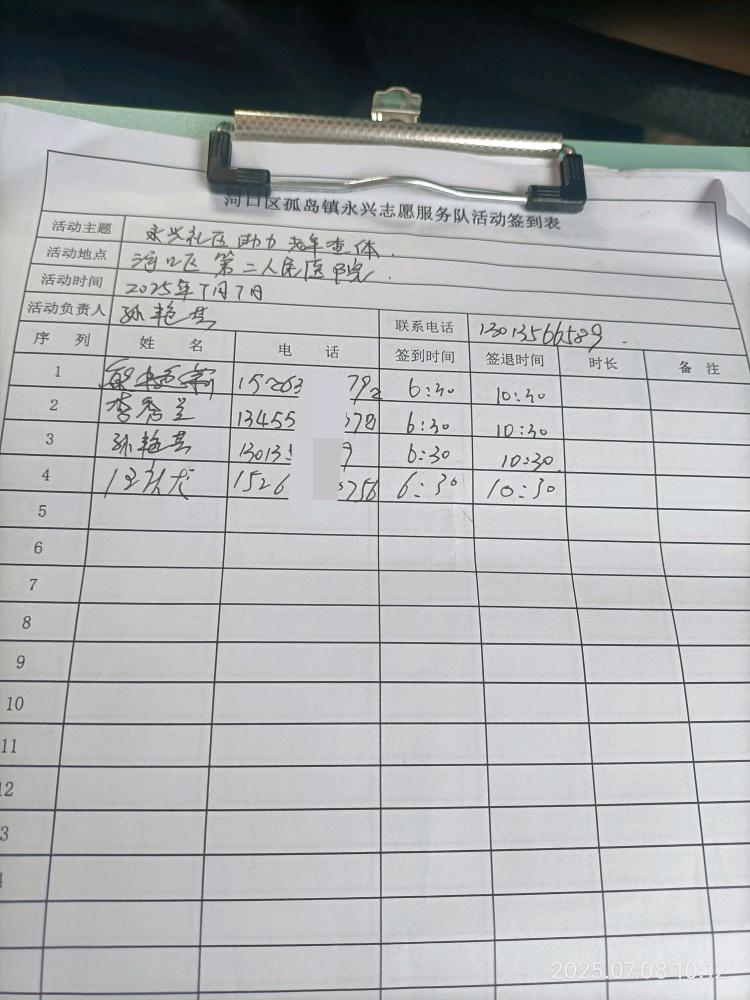 河口区孤岛镇永兴志愿服务队活动签到表
活动主题 永兴社区助力老年查体.
活动地点 河口区第二人民医院.
活动时间 2025年7月7日
活动负责人 孙艳芸 联系电话 13013566589.
序列 姓名 电话 签到时间 签退时间 时长 备注
1 15263 792 6:30 10:30
2 李秀兰 13455 378 6:30 10:30
3 孙艳芸 13013 9 6:30 10:30
4 1526 756 6:30 10:30
5
6
7
8
9
10
11
12
3
2025.07.08 10:12